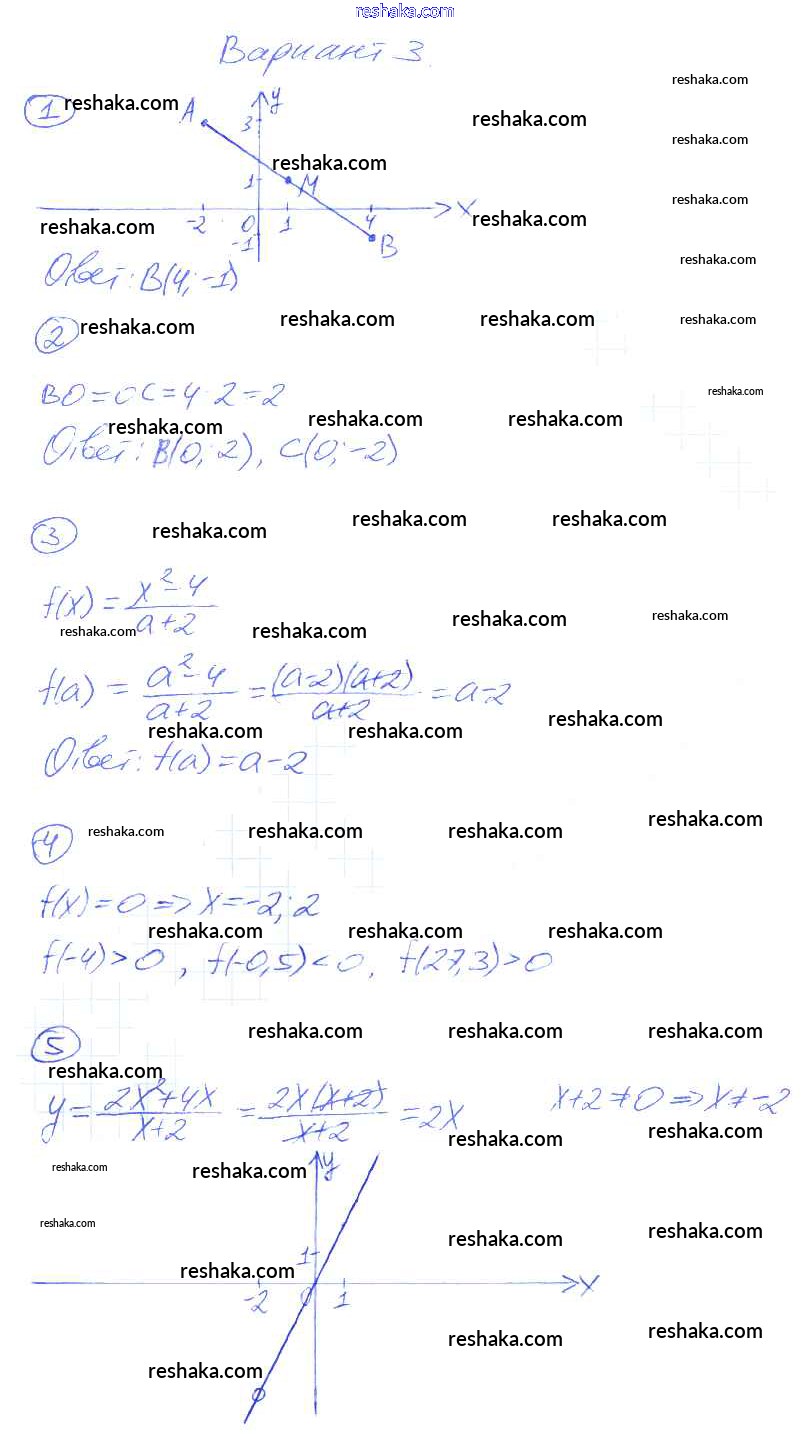 reshaka.com
Вариант 3.
1 reshaka.com A 3 y reshaka.com reshaka.com
reshaka.com reshaka.com
1 M reshaka.com
reshaka.com -2 0 1 4 x reshaka.com
-1 B
Ответ: B(4; -1) reshaka.com
2 reshaka.com reshaka.com reshaka.com reshaka.com
BO = OC = 4 : 2 = 2 reshaka.com
reshaka.com reshaka.com reshaka.com
Ответ: B(0; 2), C(0; -2)
3 reshaka.com reshaka.com reshaka.com
f(x) = x² - 4 / a + 2
reshaka.com reshaka.com reshaka.com reshaka.com
f(a) = a² - 4 / a + 2 = (a - 2)(a + 2) / a + 2 = a - 2
reshaka.com reshaka.com reshaka.com
Ответ: f(a) = a - 2
4 reshaka.com reshaka.com reshaka.com reshaka.com
f(x) = 0 => x = -2; 2
reshaka.com reshaka.com reshaka.com
f(-4) > 0, f(-0,5) < 0, f(27,3) > 0
5 reshaka.com reshaka.com reshaka.com
reshaka.com
y = 2x² + 4x / x + 2 = 2x(x + 2) / x + 2 = 2x x + 2 ≠ 0 => x ≠ -2
reshaka.com reshaka.com
reshaka.com reshaka.com y
reshaka.com reshaka.com reshaka.com
reshaka.com 1
-2 0 1 x
reshaka.com reshaka.com
reshaka.com